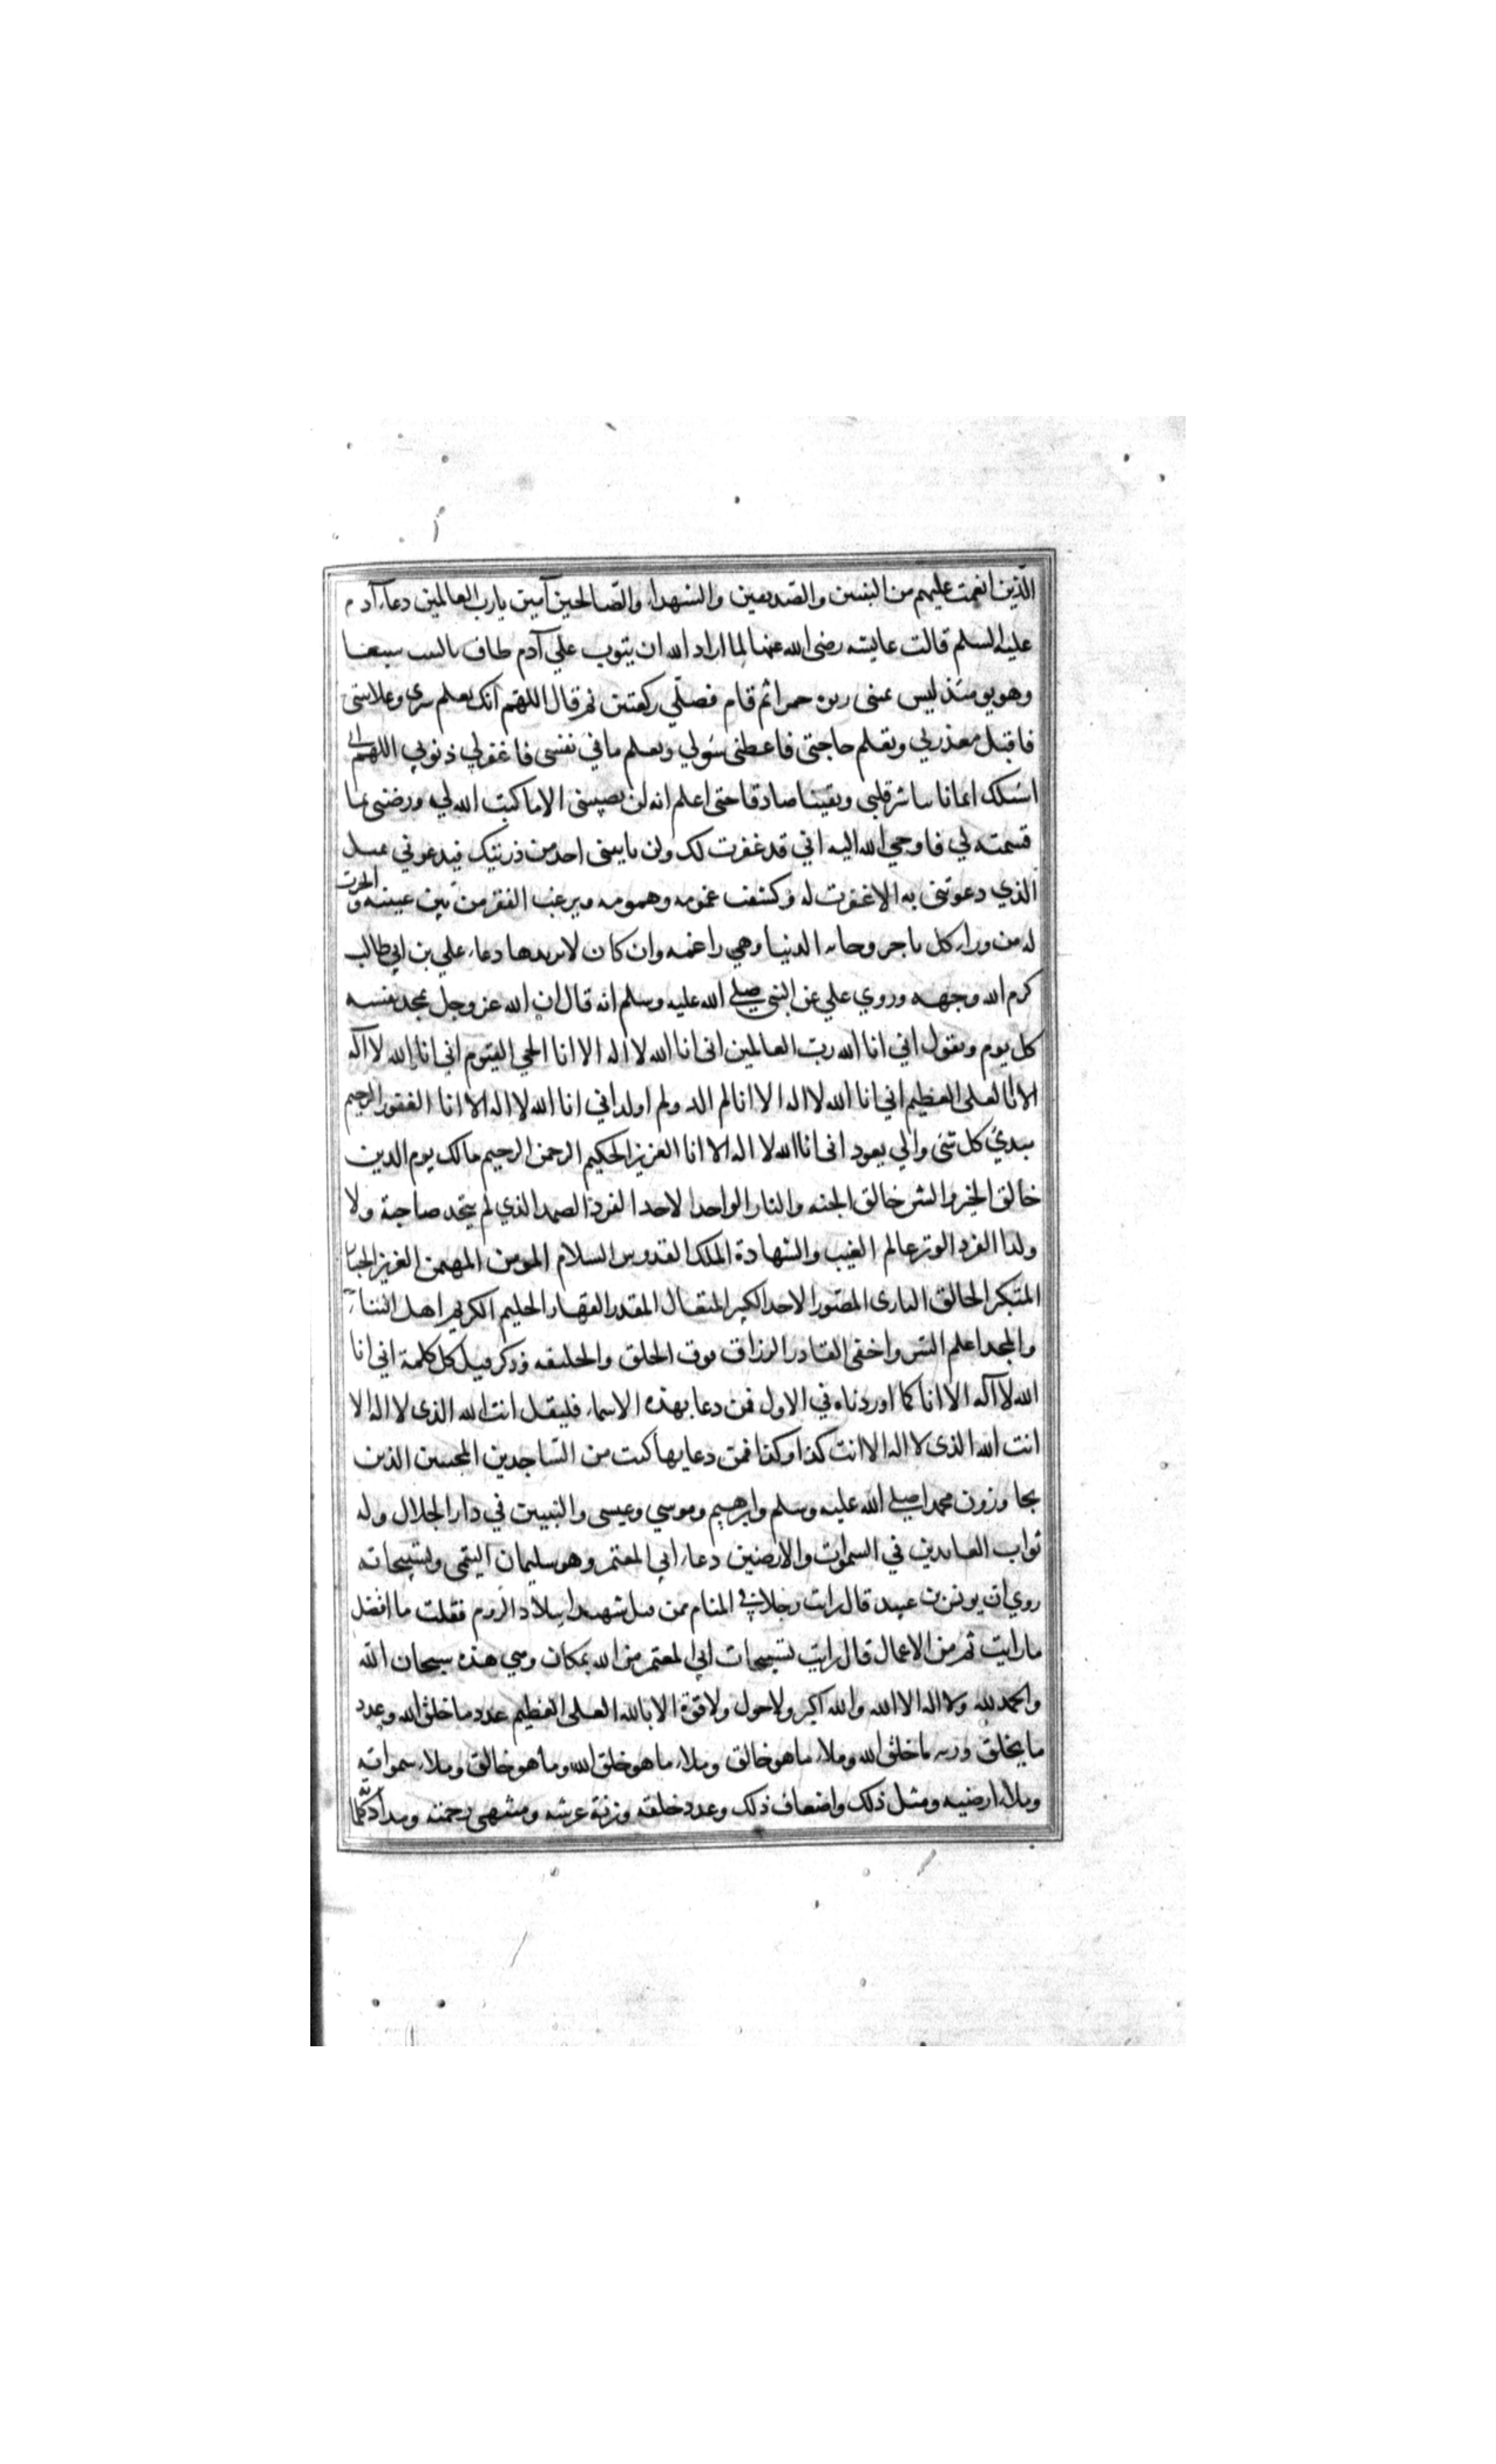 الذين انعمت عليهم من النبيين والصديقين والشهداء والصالحين آمين يارب العالمين دعاء آدم
عليه السلم قالت عايشه رضى الله عنها لما اراد الله ان يتوب علي آدم طاف بالبيت سبعا
وهو يومئذ ليس بمبنى ربوه حمرا ثم قام فصلي ركعتين ثم قال اللهم انك تعلم سري وعلانيتى
فاقبل معذرتي وتعلم حاجتى فاعطنى سؤلي وتعلم ما في نفسى فاغفرلي ذنوبي اللهم اني
اسئلك ايمانا يباشر قلبي ويقينا صادقا حتى اعلم انه لن يصيبنى الا ما كتبت الله لي ورضنى بما
قسمته لي فاوحي الله اليه اني قد غفرت لك ولن ياتينى احد من ذريتك فيدعوني بمثل
الذي دعوتنى به الا غفرت له وكشفت غمومه وهمومه ونزعت الفقر من بين عينيه واتجرت
له من وراء كل تاجر وجاءته الدنيا وهي راغمه وان كان لا يريدها دعاء علي بن ابي طالب
كرم الله وجهه وروي علي عن النبى صلي الله عليه وسلم انه قال ان الله عز وجل يمجد نفسه
كل يوم ويقول اني انا الله رب العالمين انى انا الله لا اله الا انا الحي القيوم اني انا الله لا آله
الا انا العلى العظيم اني انا الله لا اله الا انا لم الد ولم اولد اني انا الله لا اله الا انا الغفور الرحيم
مبدئ كل شى والي يعود انى انا الله لا اله الا انا العزيز الحكيم الرحمن الرحيم مالك يوم الدين
خالق الخير والشر خالق الجنه والنار الواحد الاحد الفرد الصمد الذي لم يتخد صاحبة ولا
ولدا الفرد الوتر عالم الغيب والشهادة الملك القدوس السلام المومن المهيمن العزيز الجبار
المتكبر الخالق البارى المصور الاحد الكبير المتعال المقتدر القهار الحليم الكريم اهل الثناء
والمجد اعلم السر واخفى القادر الرزاق فوق الخلق والخليقه وذكر قبل كل كلمة اني انا
الله لا آله الا انا كما اوردناه في الاول فمن دعا بهذه الاسماء فليقل انت الله الذى لا اله الا
انت الله الذى لا اله الا انت كذا وكذا فمن دعا بها كتب من الساجدين المخبتين الذين
يجاورون محمدا صلي الله عليه وسلم وابرهيم وموسي وعيسى والنبيين في دار الجلال وله
ثواب العابدين في السموات والارضين دعاء ابي المعتمر وهو سليمان التيمى وتسبيحاته
روي ان يونس بن عبيد قال رايت رجلا في المنام ممن قتل شهيدا ببلاد الروم فقلت ما افضل
ما رايت ثم من الاعمال قال رايت تسبيحات ابي المعتمر من الله بمكان وهي هذه سبحان الله
والحمد لله ولا اله الا الله والله اكبر ولا حول ولا قوة الا بالله العلى العظيم عدد ما خلق الله وعدد
ما يخلق وزنه ما خلق الله وملاء ما هو خالق وملاء ما هو خلق الله وما هو خالق وملاء سمواته
وملاء ارضيه ومثل ذلك واضعاف ذلك وعدد خلقه وزنة عرشه ومنتهى رحمته ومداد كلما